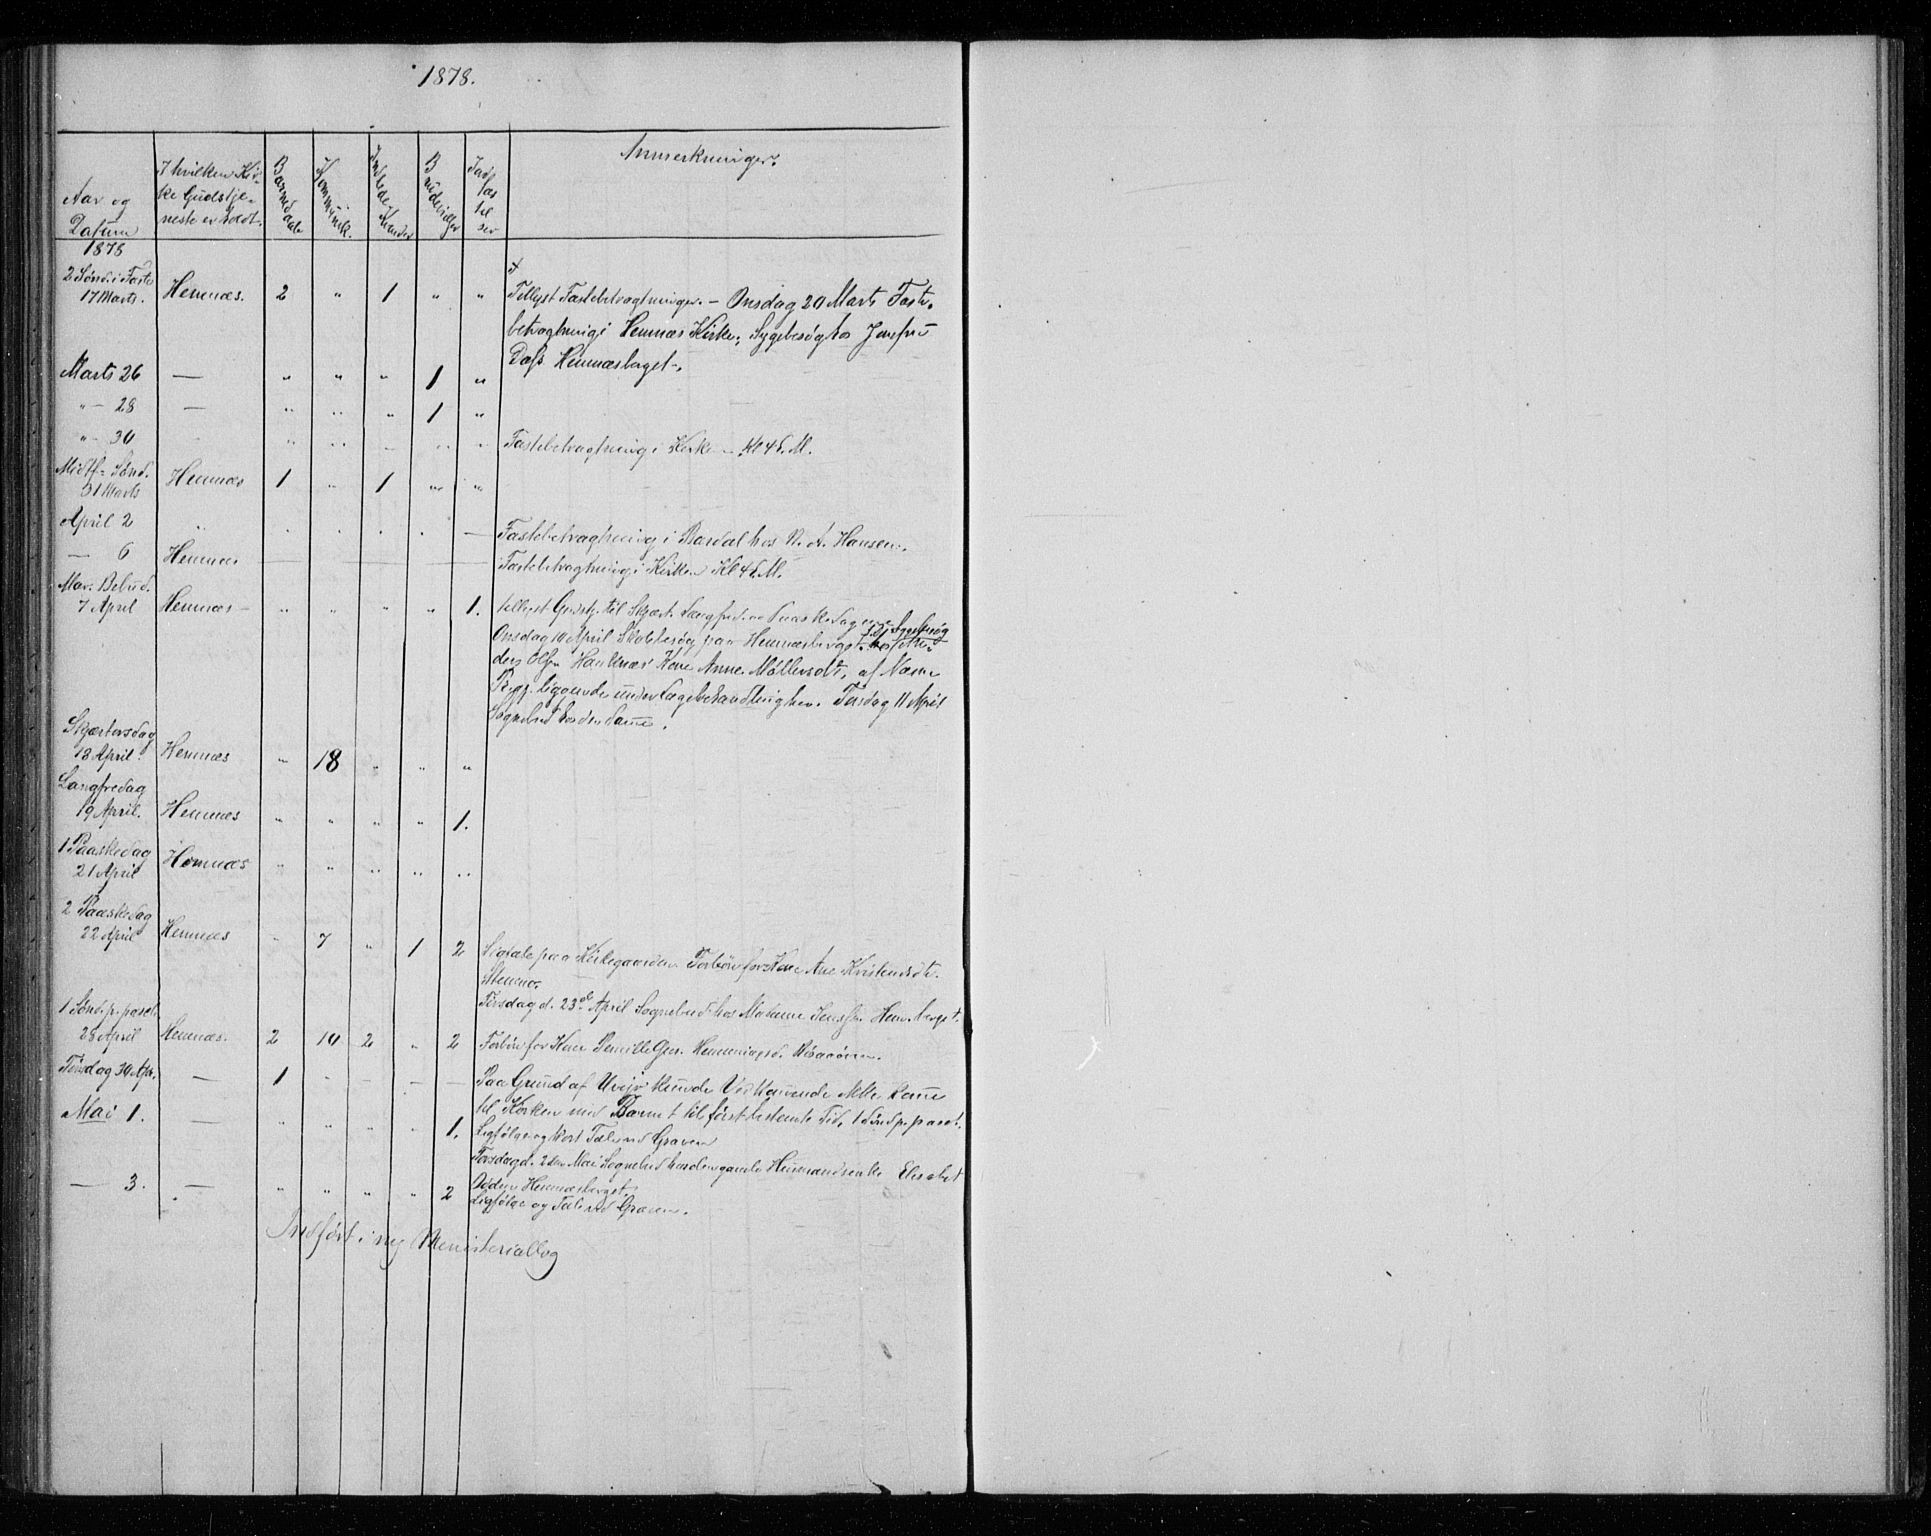 1878.
Aar og Datum
I hvilken Kir-
ke Gudstje-
neste er holdt.
Barnedaab
Kommunik.
Indlede Koner
Brudevielser
Jordfæstelser
Anmerkninger.
1878
2 Sønd. i Faste
17 Marts. Hemnæs. 2 " 1 " " Tillyst Fastebetragtninger. – Onsdag 20 Marts Faste-
betragtning i Hemnæs Kirke; Sygebesøg hos Jomfru
Dass Hemnæsberget.
Marts 26 — " " " 1 "
" – 28 — " " " 1 "
" – 30 - " " - " " Fastebetragtning i Kirken – Kl 4 E.M.
Midtf. Sønd.
31 Marts Hemnæs 1 " 1 " "
April 2 " Fastebetragtning i Bardal hos N. A. Hansen.
— 6 Hemnæs Fastebetragtning i Kirken Kl 4 E.M.
Mar. Bebud.
7 April Hemnæs " " " " 1. tillyst Gudstj. til Skjært. Langfred. og Paaskedagene
Onsdag 10 April Skolebesøg paa Hemnæsberget. Sygebesøg hos
Kone Anne Møllersdt. af Næsne
Præg. liggende under Lægebehandling her. Torsdag 11 April
Sognebud hos den Samme.
Skjærtorsdag
18 April. Hemnæs " 18 " " "
Langfredag
19 April. Hemnæs " " " " 1.
1 Paaskedag
21 April Hemnæs " " " " "
2 Paaskedag
22 April Hemnæs " 7 " 1 2 Ligtale paa Kirkegaarden Forbøn for Kone Ane Kristensdt.
Tirsdag d. 23de April Sognebud hos Madame Henn. berget.
1 Sønd. p. pasch.
28 April Hemnæs. 2 10 2 " 2 Forbøn for Kone Pernille
Tirsdag 30 Apr. — 1 - - - — Paa Grund af Uveir kunde Vedkommende ikke komme
til Kirken med Barnet til først bestemte Tid, 1 Sønd p. pasch.
Mai 1. — " " " " 1. Ligfølge og kort Tale ved Graven
Torsdag d. 2den Mai Sognebud hos den gamle Elisabet
Hemnæsberget.
— 3. — " " " " 2 Ligfølge og Tale ved Graven.
Indført i ny Ministerialbog